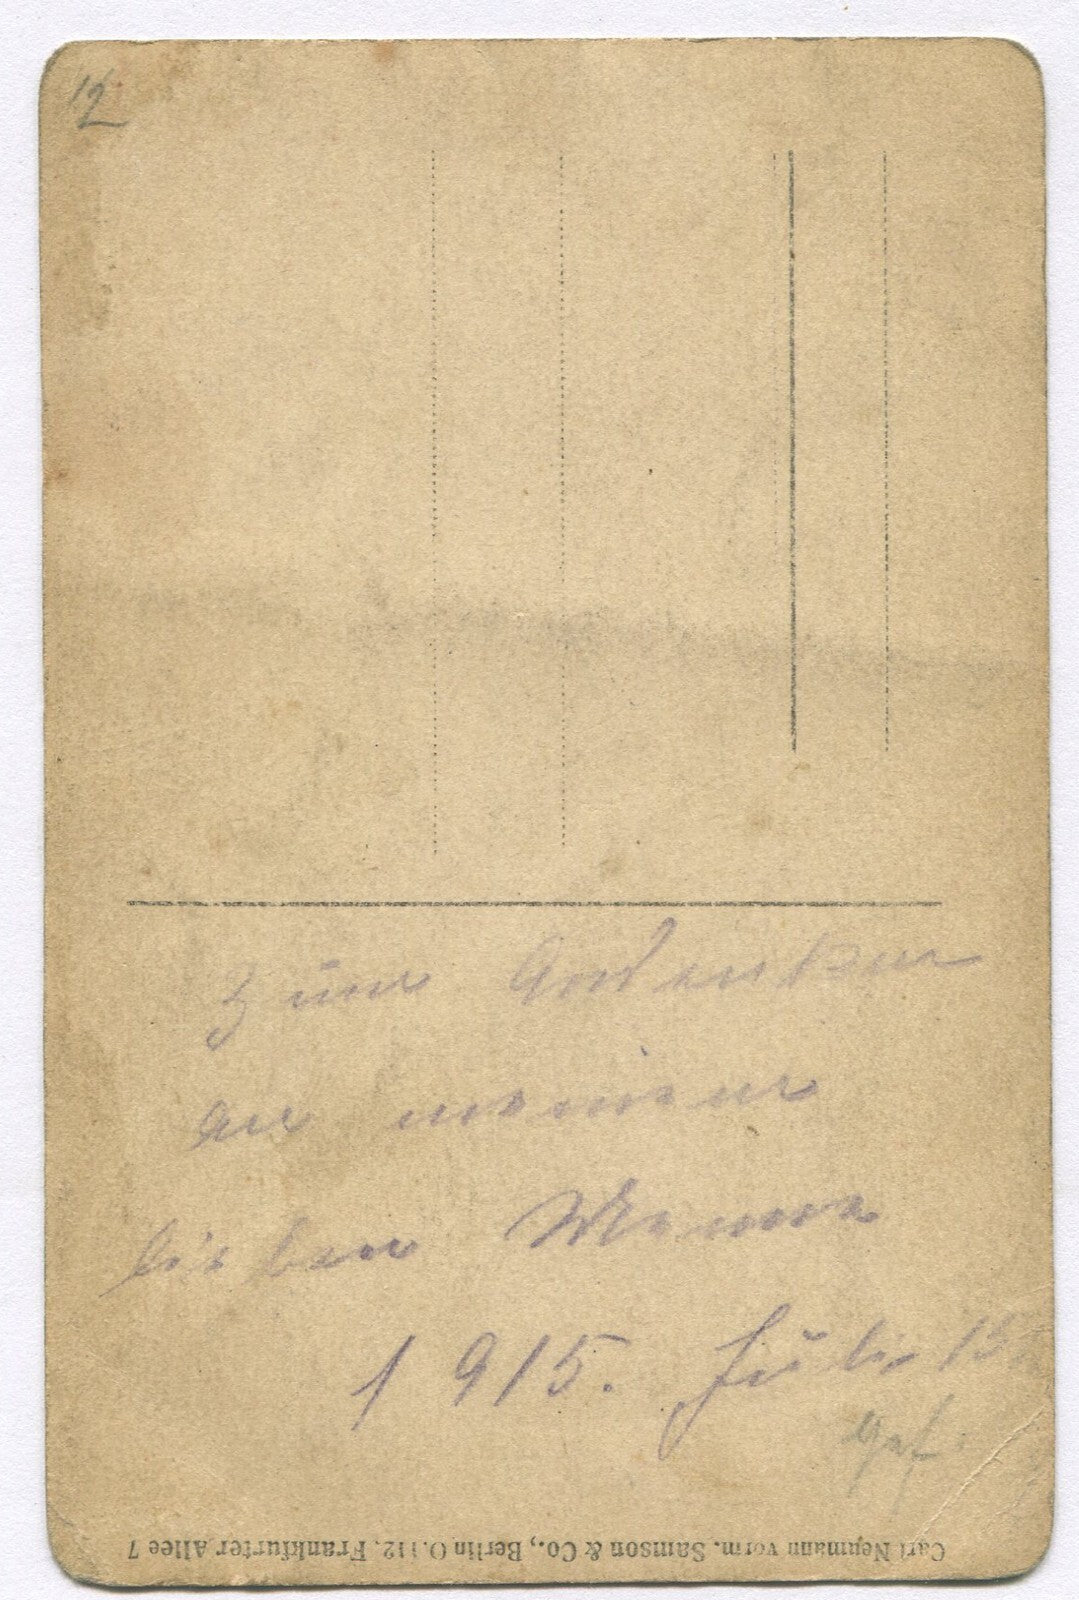 12
Zum Andenken
an meinen
lieben Mann
1915. Juli 15.
gef.
Carl Neumann vorm. Samson & Co., Berlin O.112. Frankfurter Allee 7